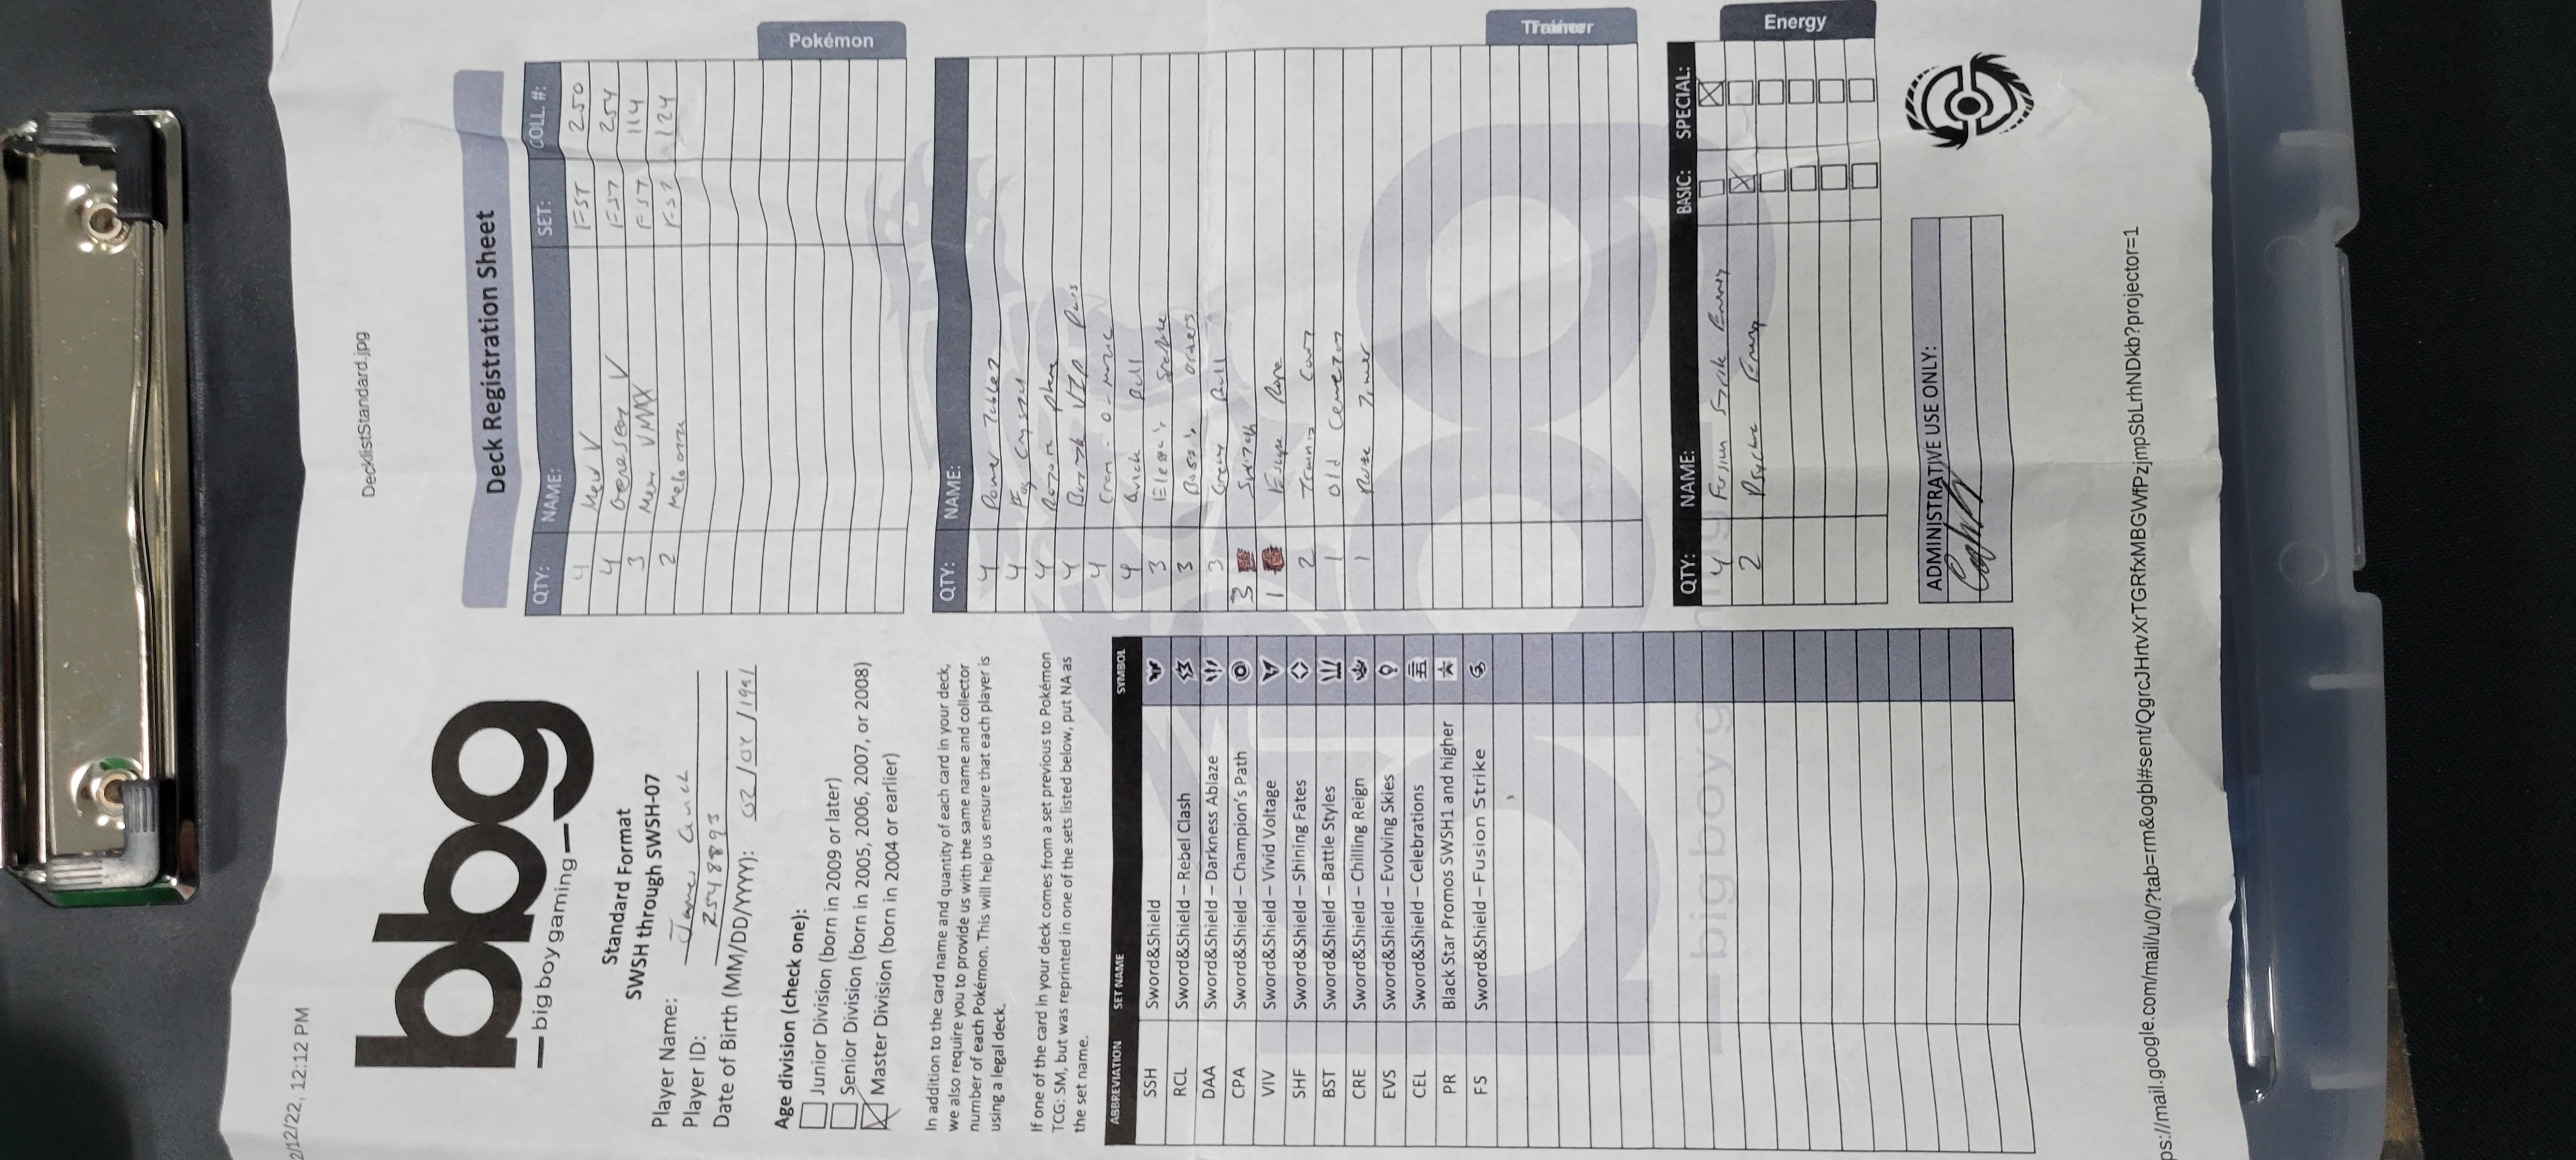 2/12/22, 12:12 PM
DecklistStandard.jpg
bbg
big boy gaming
Standard Format
SWSH through SWSH-07
Player Name: James
Player ID: 2548893
Date of Birth (MM/DD/YYYY): 02/04/1991
Age division (check one):
Junior Division (born in 2009 or later)
Senior Division (born in 2005, 2006, 2007, or 2008)
Master Division (born in 2004 or earlier)
In addition to the card name and quantity of each card in your deck,
we also require you to provide us with the same name and collector
number of each Pokémon. This will help us ensure that each player is
using a legal deck.
If one of the card in your deck comes from a set previous to Pokémon
TCG: SM, but was reprinted in one of the sets listed below, put NA as
the set name.
ABBREVIATION SET NAME SYMBOL
SSH Sword&Shield
RCL Sword&Shield – Rebel Clash
DAA Sword&Shield – Darkness Ablaze
CPA Sword&Shield – Champion's Path
VIV Sword&Shield – Vivid Voltage
SHF Sword&Shield – Shining Fates
BST Sword&Shield – Battle Styles
CRE Sword&Shield – Chilling Reign
EVS Sword&Shield – Evolving Skies
CEL Sword&Shield – Celebrations
PR Black Star Promos SWSH1 and higher
FS Sword&Shield – Fusion Strike
Deck Registration Sheet
QTY: NAME: SET: COLL. #:
4 Mew V FST 250
4 Genesect V FST 254
3 Mew VMAX FST 114
2 Meloetta FST 124
Pokémon
QTY: NAME:
4 Power Tablet
4 Fog Crystal
4 Rotom Phone
4 Battle VIP Pass
4 Cram-o-matic
4 Quick Ball
3 Elesa's Sparkle
3 Boss's orders
3 Great Ball
3 Switch
1 Escape Rope
2 Training Court
1 Old Cemetery
1
Trainer
QTY: NAME: BASIC: SPECIAL:
4 Fusion Strike Energy
2 Psychic Energy
Energy
ADMINISTRATIVE USE ONLY:
big boy gaming
ps://mail.google.com/mail/u/0/?tab=rm&ogbl#sent/QgrcJHrtvXrTGRfxMBGWfPzjmpSbLrhNDkb?projector=1